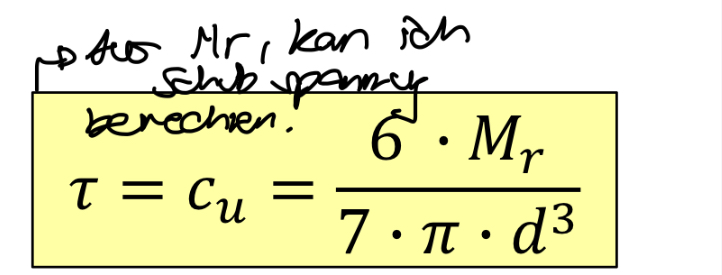 Aus Mr, kan ich
Schubspannung
berechnen!
τ = c_u = \frac{6 · M_r}{7 · π · d^3}